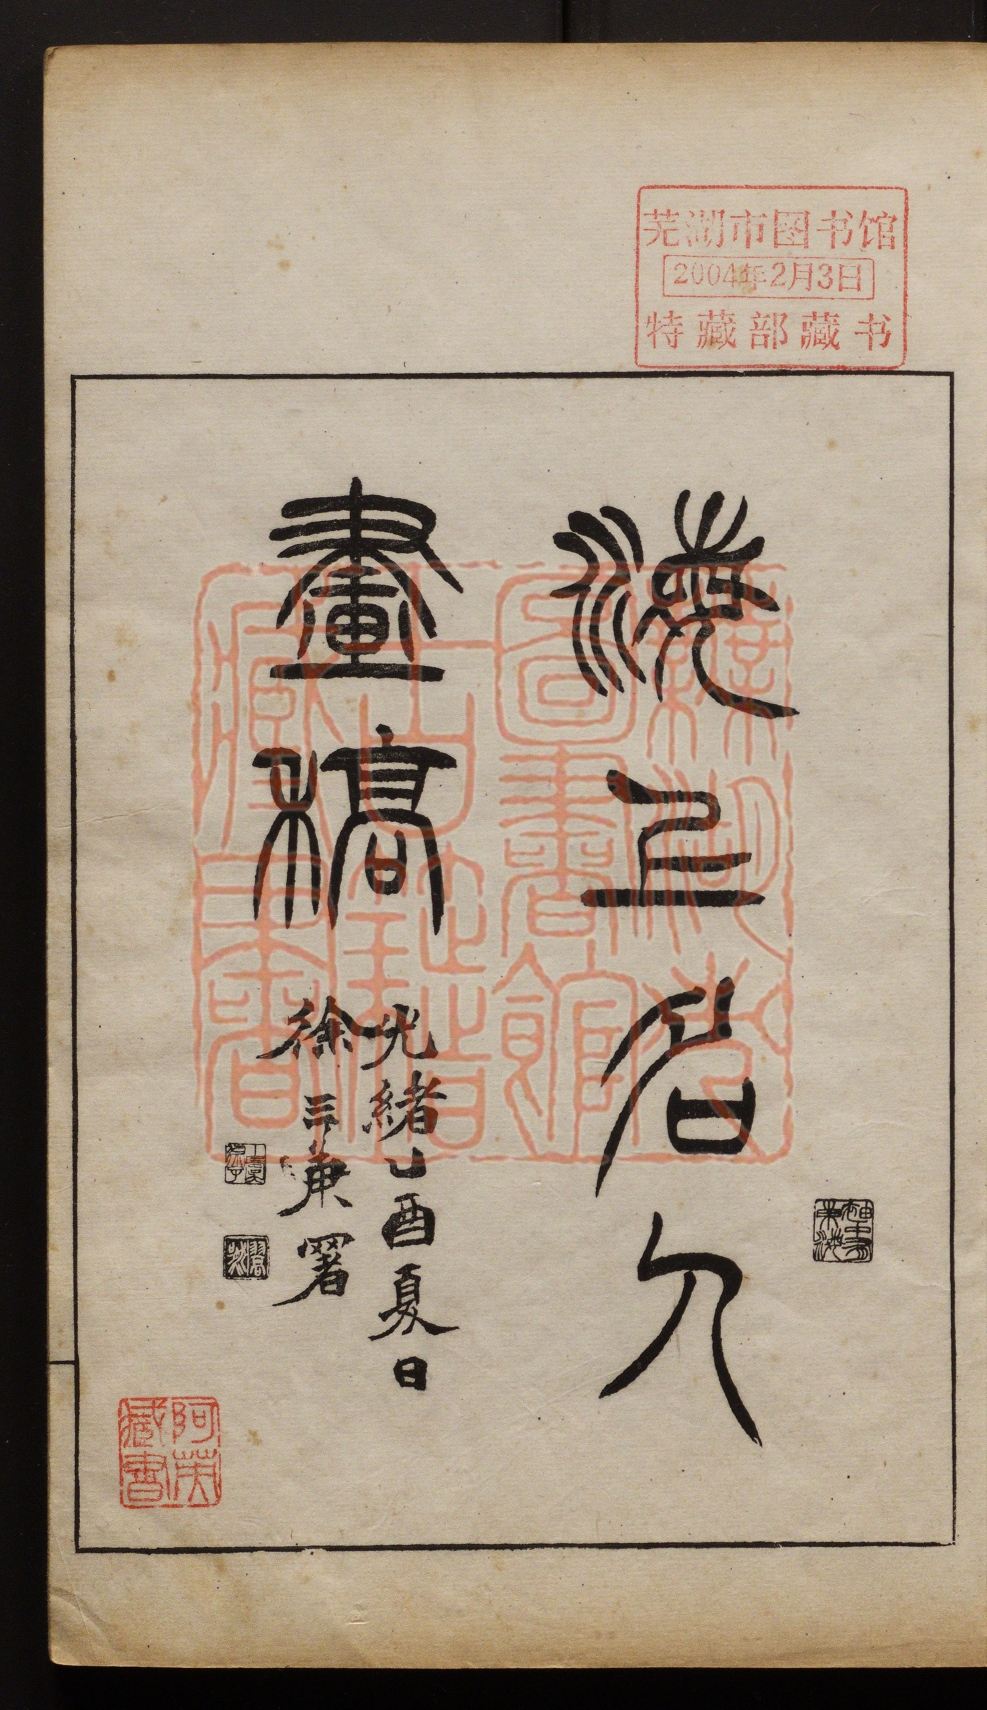 芜湖市图书馆
2004年2月3日
特藏部藏书
海上名人
畫稿
光緒乙酉夏日
徐三庚署
阿英
藏書